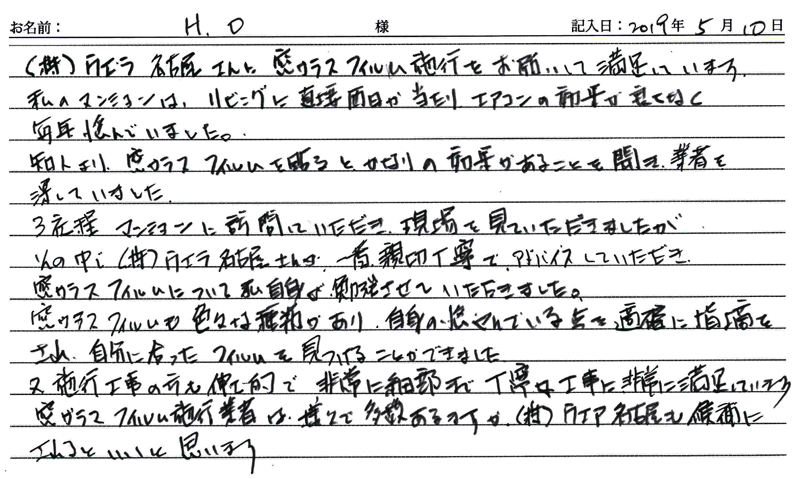 お名前: H.O 様 記入日:2019年5月10日
(株)ウエラ名古屋さんに窓ガラスフィルム施行をお願いして満足しています。
私のマンションは、リビングに直接西日が当たりエアコンの効果が良くなく
毎年悩んでいました。
知人より、窓ガラスフィルムを貼るとかなりの効果があることを聞き、業者を
探していました。
3社程マンションに訪問していただき、現場を見ていただきましたが
その中で(株)ウエラ名古屋さんが、一番親切丁寧で、アドバイスしていただき、
窓ガラスフィルムについて私自身が勉強させていただきました。
窓ガラスフィルムも色々な種類があり、自身の悩んでいる点を適確に指摘を
され、自分に合ったフィルムを見つけることができました
又施行工事の方も 的で非常に細部まで丁寧な工事に非常に満足しています
窓ガラスフィルム施行業者は、様々で多数ありますが、(株)ウエラ名古屋も候補に
されるといいと思います